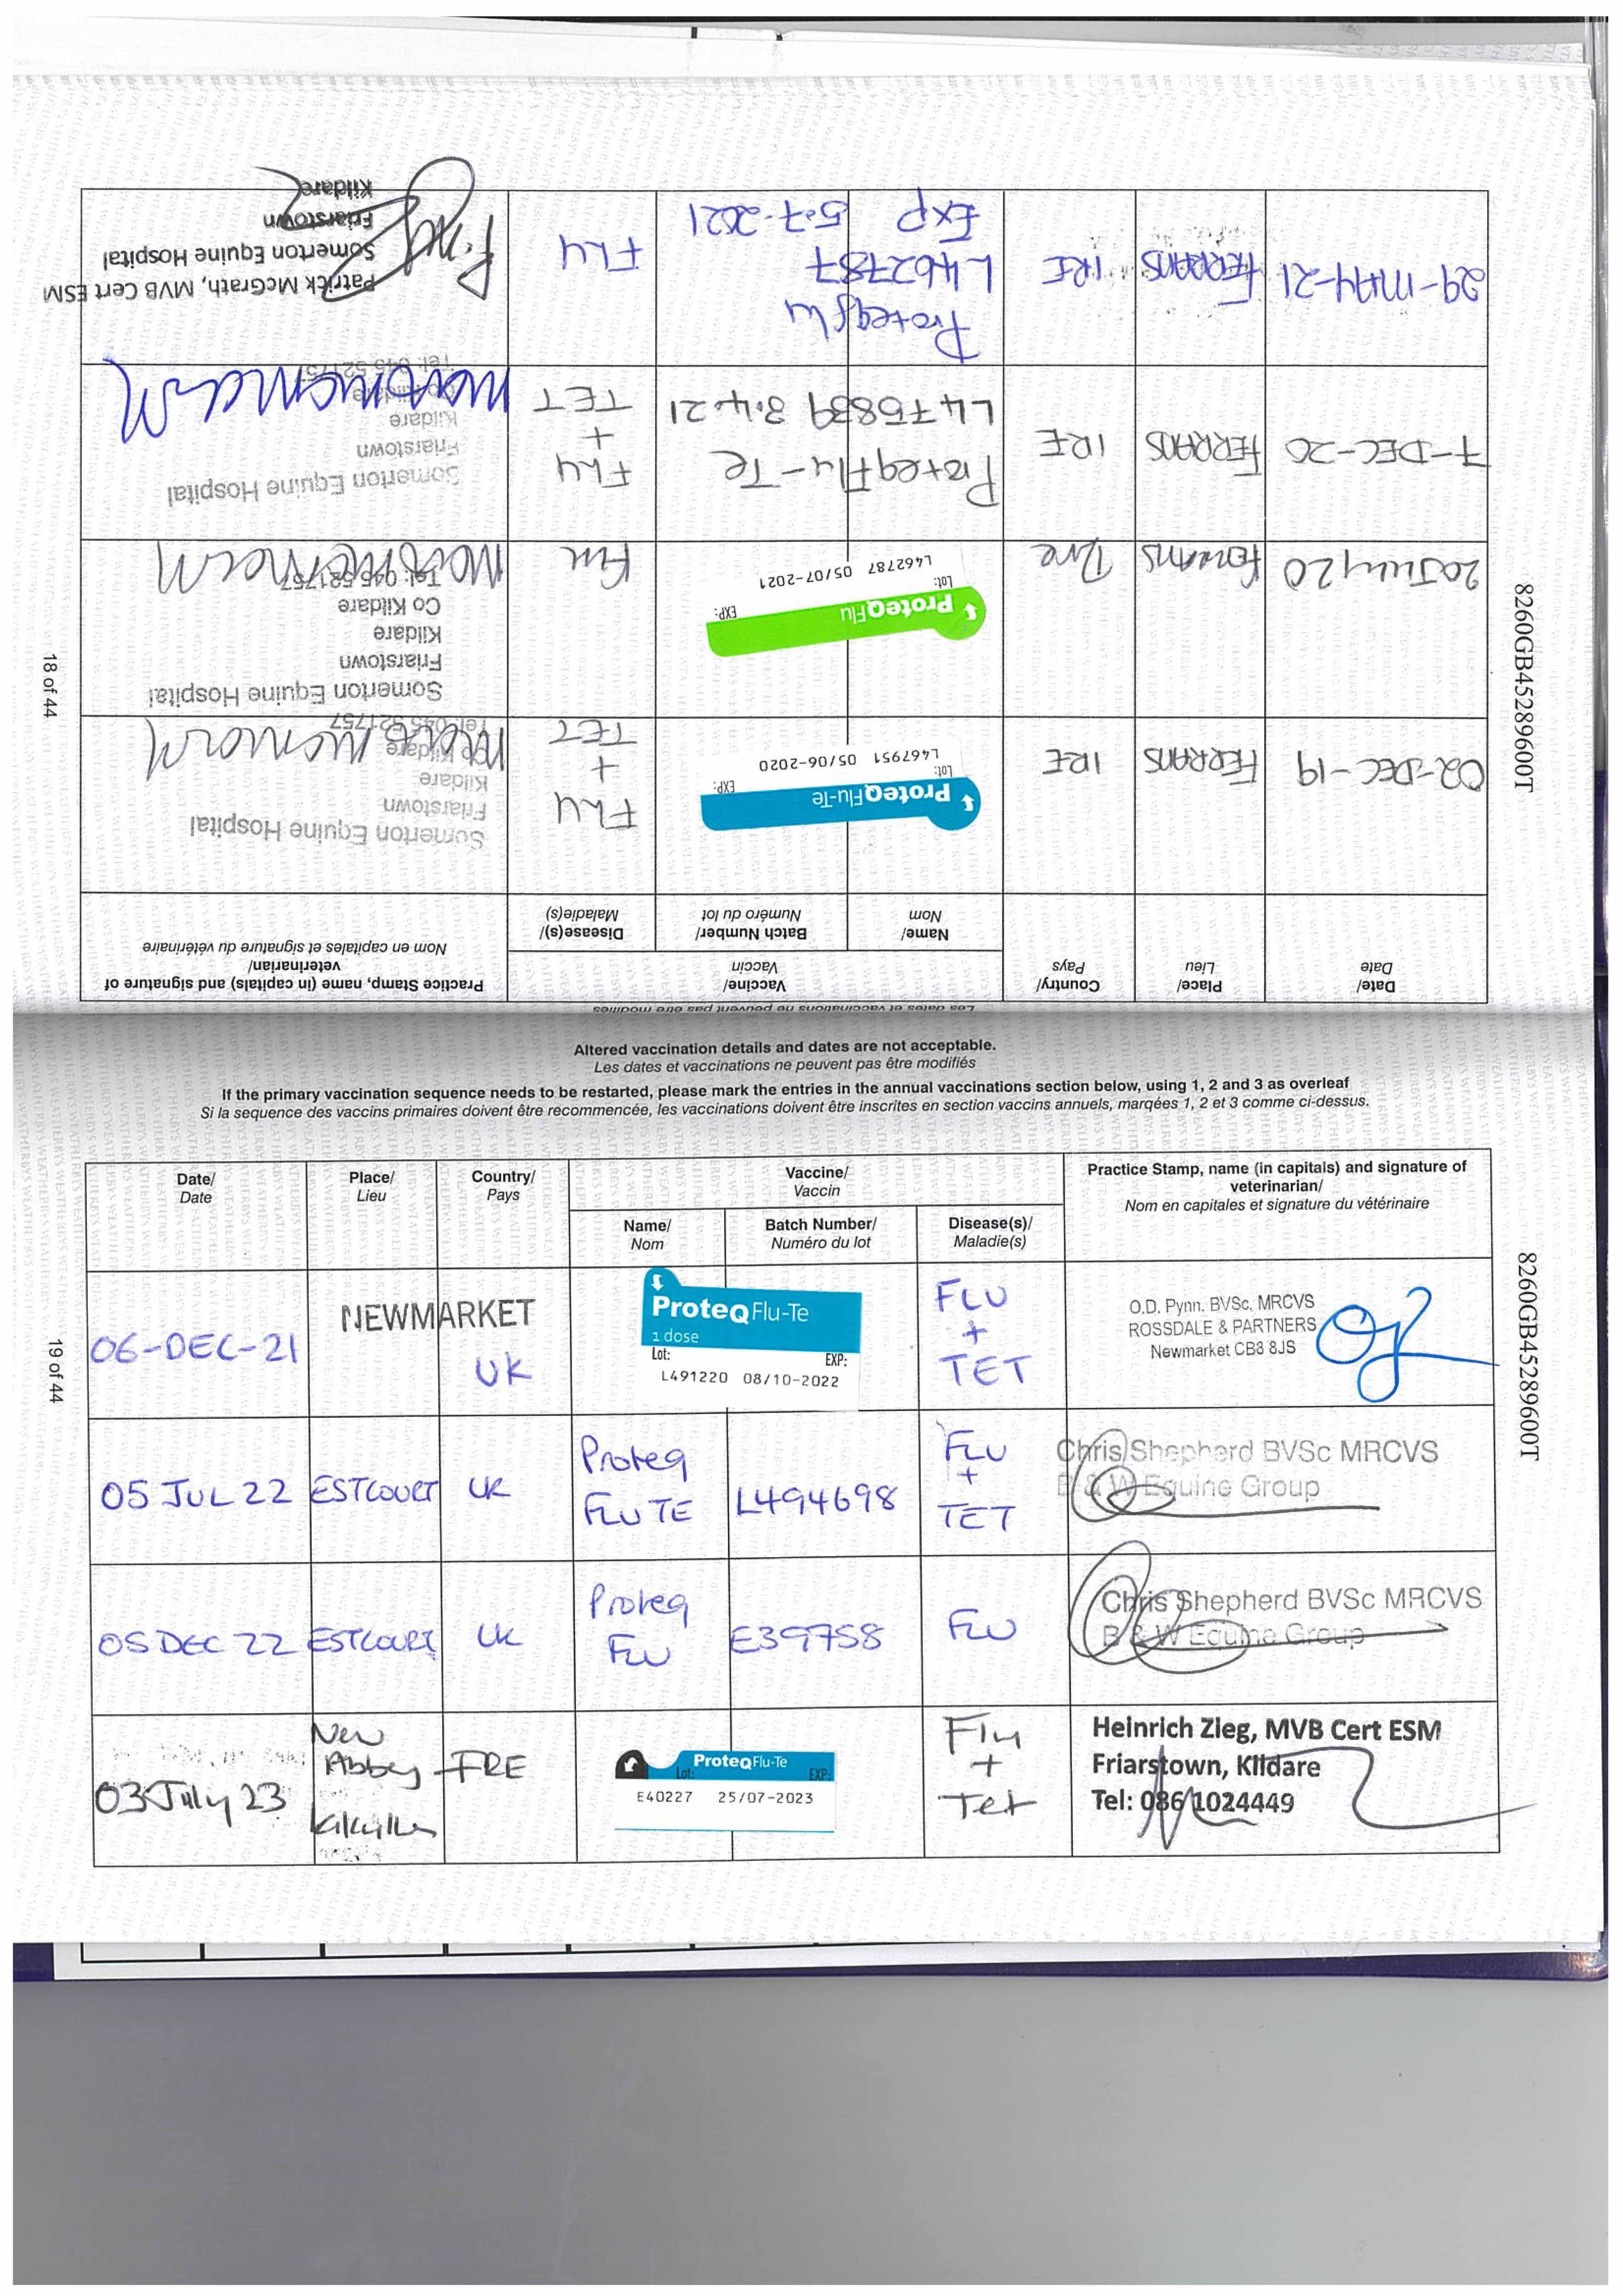 18 of 44
8260GB45289600T
Les dates et vaccinations ne peuvent pas être modifiés
Date/
Date
Place/
Lieu
Country/
Pays
Vaccine/
Vaccin
Name/
Nom
Batch Number/
Numéro du lot
Disease(s)/
Maladie(s)
Practice Stamp, name (in capitals) and signature of
veterinarian/
Nom en capitales et signature du vétérinaire
02-DEC-19
FERRANS
IRE
ProteqFlu-Te
Lot:
EXP:
L467951 05/06-2020
FLU
+
TET
Somerton Equine Hospital
Friarstown
Kildare
Co Kildare
Tel: 045 521757
20 July 20
Ferrans
Ire
ProteqFlu
Lot:
EXP:
L462787 05/07-2021
Flu
Somerton Equine Hospital
Friarstown
Kildare
Co Kildare
Tel: 045 521757
7-DEC-20
FERRANS
IRE
ProteqFlu-Te
L475839 3.4.21
FLU
+
TET
Somerton Equine Hospital
Friarstown
Kildare
Co Kildare
Tel: 045 521757
29-MAY-21
FERRANS
IRE
Proteqflu
L462787
Exp 5-7-2021
FLU
Patrick McGrath, MVB Cert ESM
Somerton Equine Hospital
Friarstown
Kildare
Altered vaccination details and dates are not acceptable.
Les dates et vaccinations ne peuvent pas être modifiés
If the primary vaccination sequence needs to be restarted, please mark the entries in the annual vaccinations section below, using 1, 2 and 3 as overleaf
Si la sequence des vaccins primaires doivent être recommencée, les vaccinations doivent être inscrites en section vaccins annuels, marqées 1, 2 et 3 comme ci-dessus.
19 of 44
8260GB45289600T
Date/
Date
Place/
Lieu
Country/
Pays
Vaccine/
Vaccin
Name/
Nom
Batch Number/
Numéro du lot
Disease(s)/
Maladie(s)
Practice Stamp, name (in capitals) and signature of
veterinarian/
Nom en capitales et signature du vétérinaire
06-DEC-21
NEWMARKET
UK
ProteqFlu-Te
1 dose
Lot:
EXP:
L491220 08/10-2022
FLU
+
TET
O.D. Pynn. BVSc, MRCVS
ROSSDALE & PARTNERS
Newmarket CB8 8JS
05 JUL 22
ESTCOURT
UK
Proteq
FLU TE
L494698
FLU
+
TET
Chris Shepherd BVSc MRCVS
B & W Equine Group
05 DEC 22
ESTCOURT
UK
Proteq
FLU
E39758
FLU
Chris Shepherd BVSc MRCVS
B & W Equine Group
03 July 23
New
Abbey
Kilcullen
IRE
ProteqFlu-Te
Lot:
EXP:
E40227 25/07-2023
Flu
+
Tet
Heinrich Zieg, MVB Cert ESM
Friarstown, Kildare
Tel: 086 1024449